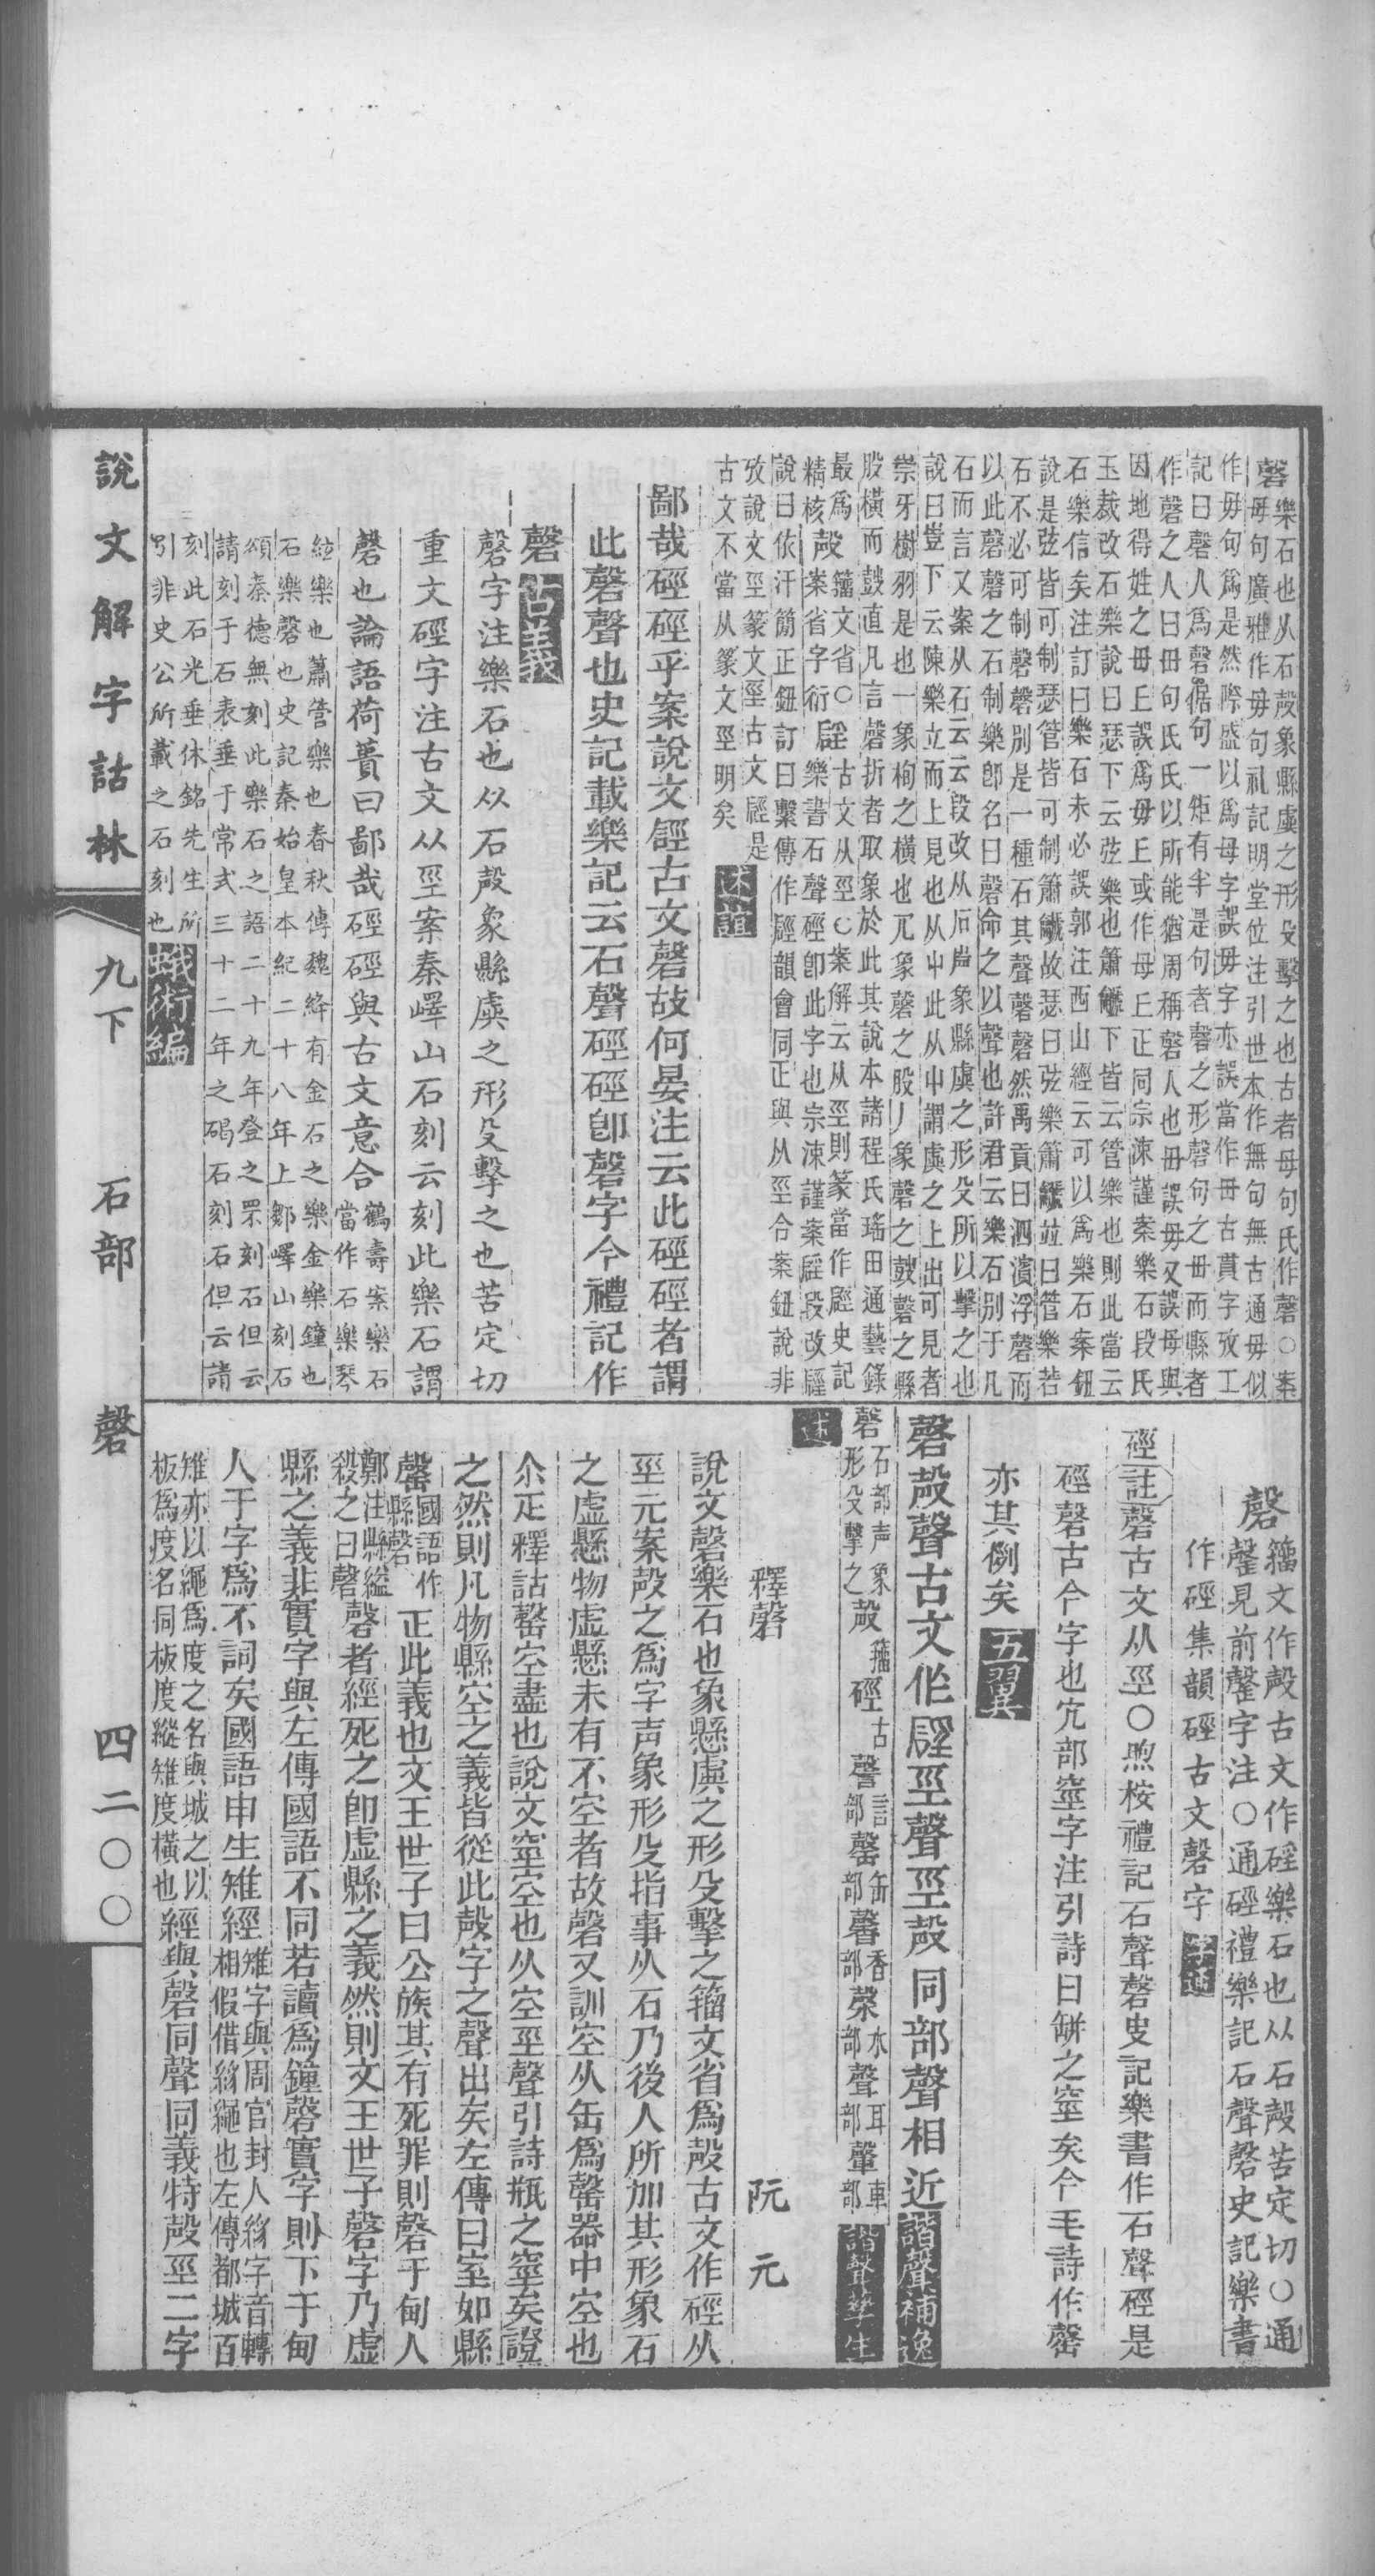 磬樂石也从石殸象縣虡之形殳擊之也古者毋句氏作磬○案
毋句廣雅作毋句禮記明堂位注引世本作無句無古通毋似
作毋句爲是然際盛以爲母字誤毋字亦誤當作毌古貫字攷工
記曰磬人爲磬倨句一矩有半是句者磬之形磬句之毌而縣者
作磬之人曰毌句氏氏以所能猶周稱磬人也毌誤毋又誤母與
因地得姓之毌丘誤爲毋丘或作母丘正同宗涑謹案樂石段氏
玉裁改石樂說曰瑟下云弦樂也簫下皆云管樂也則此當云
石樂信矣注訂曰樂石未必誤郭注西山經云可以爲樂石案鈕
說是弦皆可制瑟管皆可制簫故瑟曰弦樂簫並曰管樂若
石不必可制磬磬別是一種石其聲磬磬然禹貢曰泗濱浮磬而
以此磬磬之石制樂卽名曰磬命之以聲也許君云樂石別于凡
石而言又案从石云云段改从石声象縣虡之形殳所以擊之也
說曰豈下云陳樂立而上見也从屮此从屮謂虡之上出可見者
崇牙樹羽是也一象栒之橫也象磬之股丿象磬之鼓磬之縣
股橫而鼓直凡言磬折者取象於此其說本諸程氏瑤田通藝錄
最爲精核殸籒文省○古文从巠○案解云从巠則篆當作史記
案省字衍樂書石聲硜卽此字也宗涑謹案段改
說曰依汗簡正鈕訂曰繫傳作韻會同正與从巠合案鈕說非
攷說文巠篆文巠古文是
古文不當从篆文巠明矣 述誼
鄙哉硜硜乎案說文硜古文磬故何晏注云此硜硜者謂
此磬聲也史記載樂記云石聲硜硜卽磬字今禮記作
磬 古義
磬字注樂石也从石殸象縣虡之形殳擊之也苦定切
重文硜字注古文从巠案秦嶧山石刻云刻此樂石謂
磬也論語荷蕢曰鄙哉硜硜與古文意合鶴壽案樂石當作石樂琴
絃樂也蕭管樂也春秋傳魏絳有金石之樂金樂鐘也
石樂磬也史記秦始皇本紀二十八年上鄒嶧山刻石
頌秦德無刻此樂石之語二十九年登之罘刻石但云
請刻于石表垂于常式三十二年之碣石刻石但云請
刻此石光垂休銘先生所
引非史公所載之石刻也 蛾術編
磬籒文作殸古文作硜樂石也从石殸苦定切○通
罄見前罄字注○通硜禮樂記石聲磬史記樂書
作硜集韻硜古文磬字
硜註磬古文从巠○煦桉禮記石聲磬史記樂書作石聲硜是
硜磬古今字也穴部窐字注引詩曰缾之窐矣今毛詩作罄
亦其例矣 五翼
磬殸聲古文作硜巠聲巠殸同部聲相近 諧聲補逸
磬石部声象形殳擊之殸籒硜古謦言部罄缶部馨香部漀水部聲耳部車部 諧聲孳生述
釋磬 阮元
說文磬樂石也象懸虡之形殳擊之籒文省爲殸古文作硜从
巠元案殸之爲字声象形殳指事从石乃後人所加其形象石
之虛懸物虛懸未有不空者故磬又訓空从缶爲罄器中空也
尒疋釋詁罄空盡也說文窐空也从空巠聲引詩瓶之窐矣證
之然則凡物縣空之義皆從此殸字之聲出矣左傳曰室如縣
罄國語作縣磬正此義也文王世子曰公族其有死罪則磬于甸人
鄭注縣縊殺之曰磬磬者經死之卽虛縣之義然則文王世子磬字乃虛
縣之義非實字與左傳國語不同若讀爲鐘磬實字則下于甸
人于字爲不詞矣國語申生雉經雉字與周官封人絼字音轉相假借絼繩也左傳都城百
雉亦以繩爲度之名與城之以板爲度名同板度縱雉度橫也經與磬同聲同義特殸巠二字
說文解字詁林
九下 石部 磬
四二〇〇